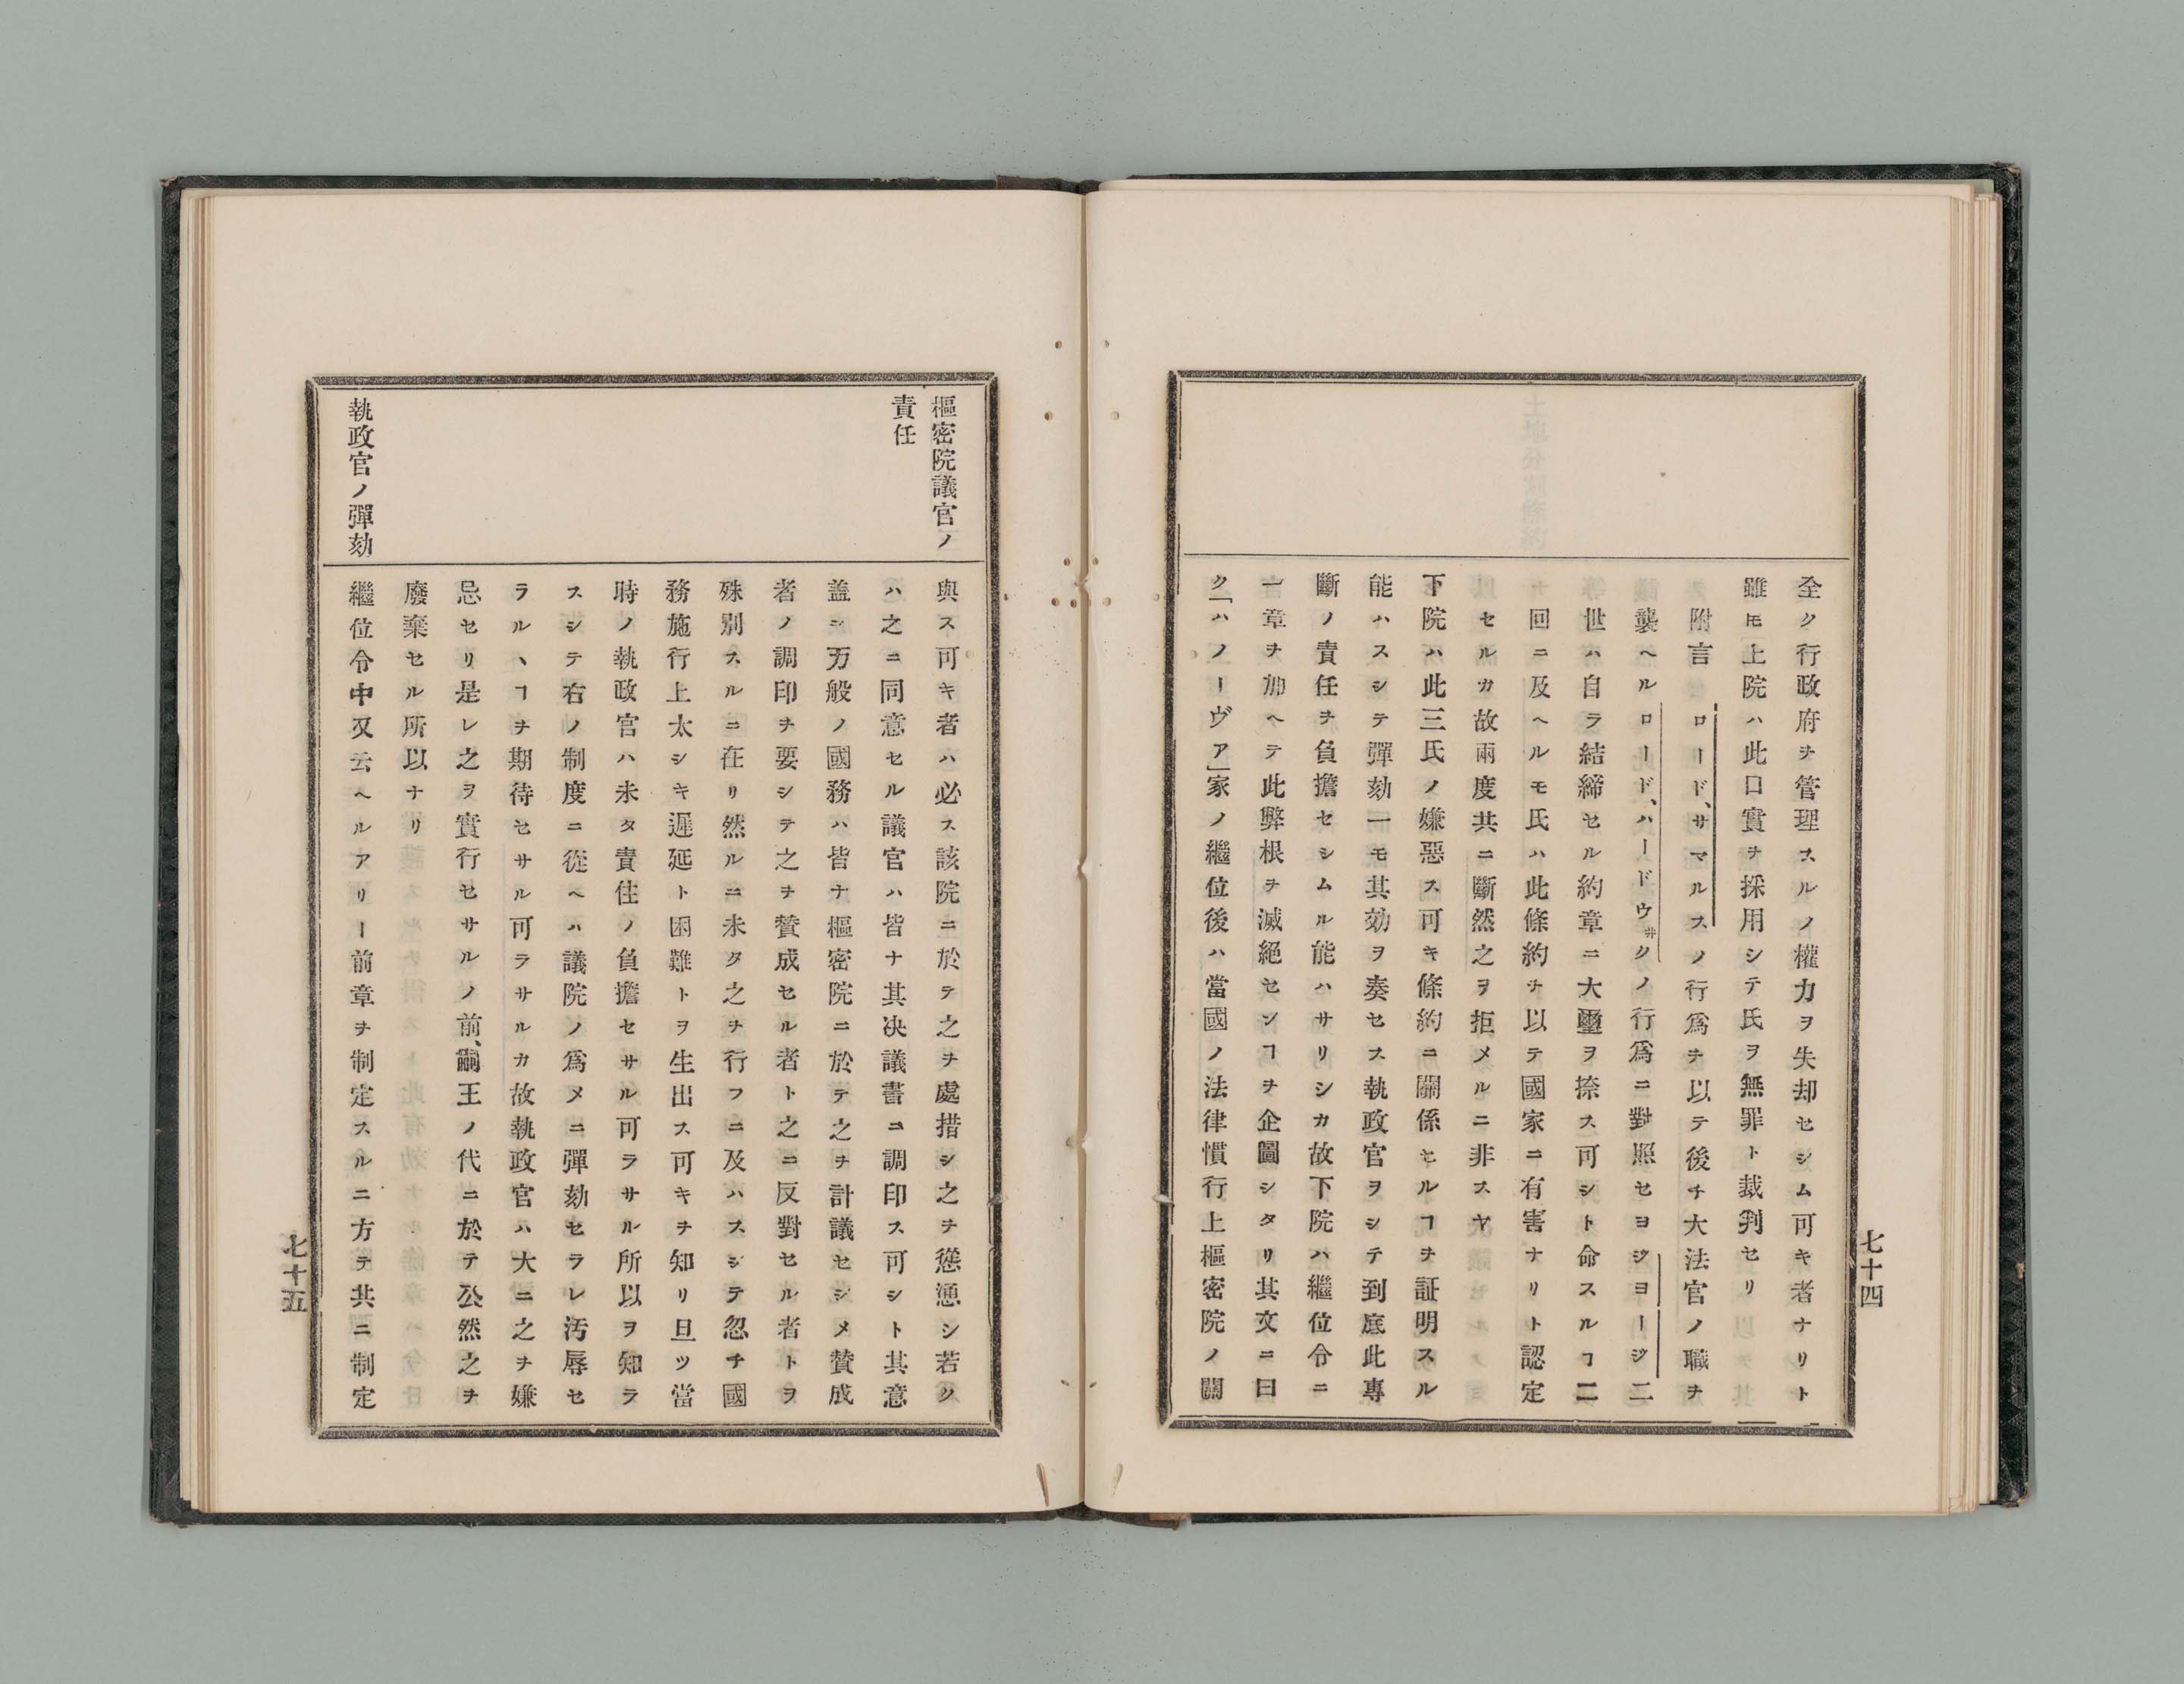 全ク行政府ヲ管理スルノ權力ヲ失却セシム可キ者ナリト
雖𪜈上院ハ此口實ヲ採用シテ氏ヲ無罪ト裁判セリ
附言 ロード、サマルスノ行爲ヲ以テ後チ大法官ノ職ヲ
襲ヘルロード、ハードウ井クノ行爲ニ對照セヨジヨージ二
世ハ自ラ結締セル約章ニ大璽ヲ捺ス可シト命スルヿ二
回ニ及ヘルモ氏ハ此條約ヲ以テ國家ニ有害ナリト認定
セルカ故兩度共ニ斷然之ヲ拒メルニ非スヤ
下院ハ此三氏ノ嫌惡ス可キ條約ニ關係セルヿヲ証明スル
能ハスシテ彈劾一モ其効ヲ奏セス執政官ヲシテ到底此專
斷ノ責任ヲ負擔セシムル能ハサリシカ故下院ハ繼位令ニ
一章ヲ加ヘテ此弊根ヲ滅絕センヿヲ企圖シタリ其文ニ曰
ク「ハノーヴア」家ノ繼位後ハ當國ノ法律慣行上樞密院ノ關
七十四
樞密院議官ノ
責任
與ス可キ者ハ必ス該院ニ於テ之ヲ處措シ之ヲ慫慂シ若ク
ハ之ニ同意セル議官ハ皆ナ其决議書ニ調印ス可シト其意
盖シ万般ノ國務ハ皆ナ樞密院ニ於テ之ヲ計議セシメ賛成
者ノ調印ヲ要シテ之ヲ賛成セル者ト之ニ反對セル者トヲ
殊別スルニ在リ然ルニ未タ之ヲ行フニ及ハスシテ忽チ國
務施行上太シキ遲延ト困難トヲ生出ス可キヲ知リ且ツ當
時ノ執政官ハ未タ責任ノ負擔セサル可ラサル所以ヲ知ラ
スシテ右ノ制度ニ從ヘハ議院ノ爲メニ彈劾セラレ汚辱セ
ラルヽヿヲ期待セサル可ラサルカ故執政官ハ大ニ之ヲ嫌
忌セリ是レ之ヲ實行セサルノ前、嗣王ノ代ニ於テ公然之ヲ
廢棄セル所以ナリ
執政官ノ彈劾
繼位令中又云ヘルアリー前章ヲ制定スルニ方テ共ニ制定
七十五